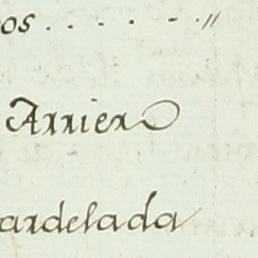 os . . . . - . "
Arriero
ardelada